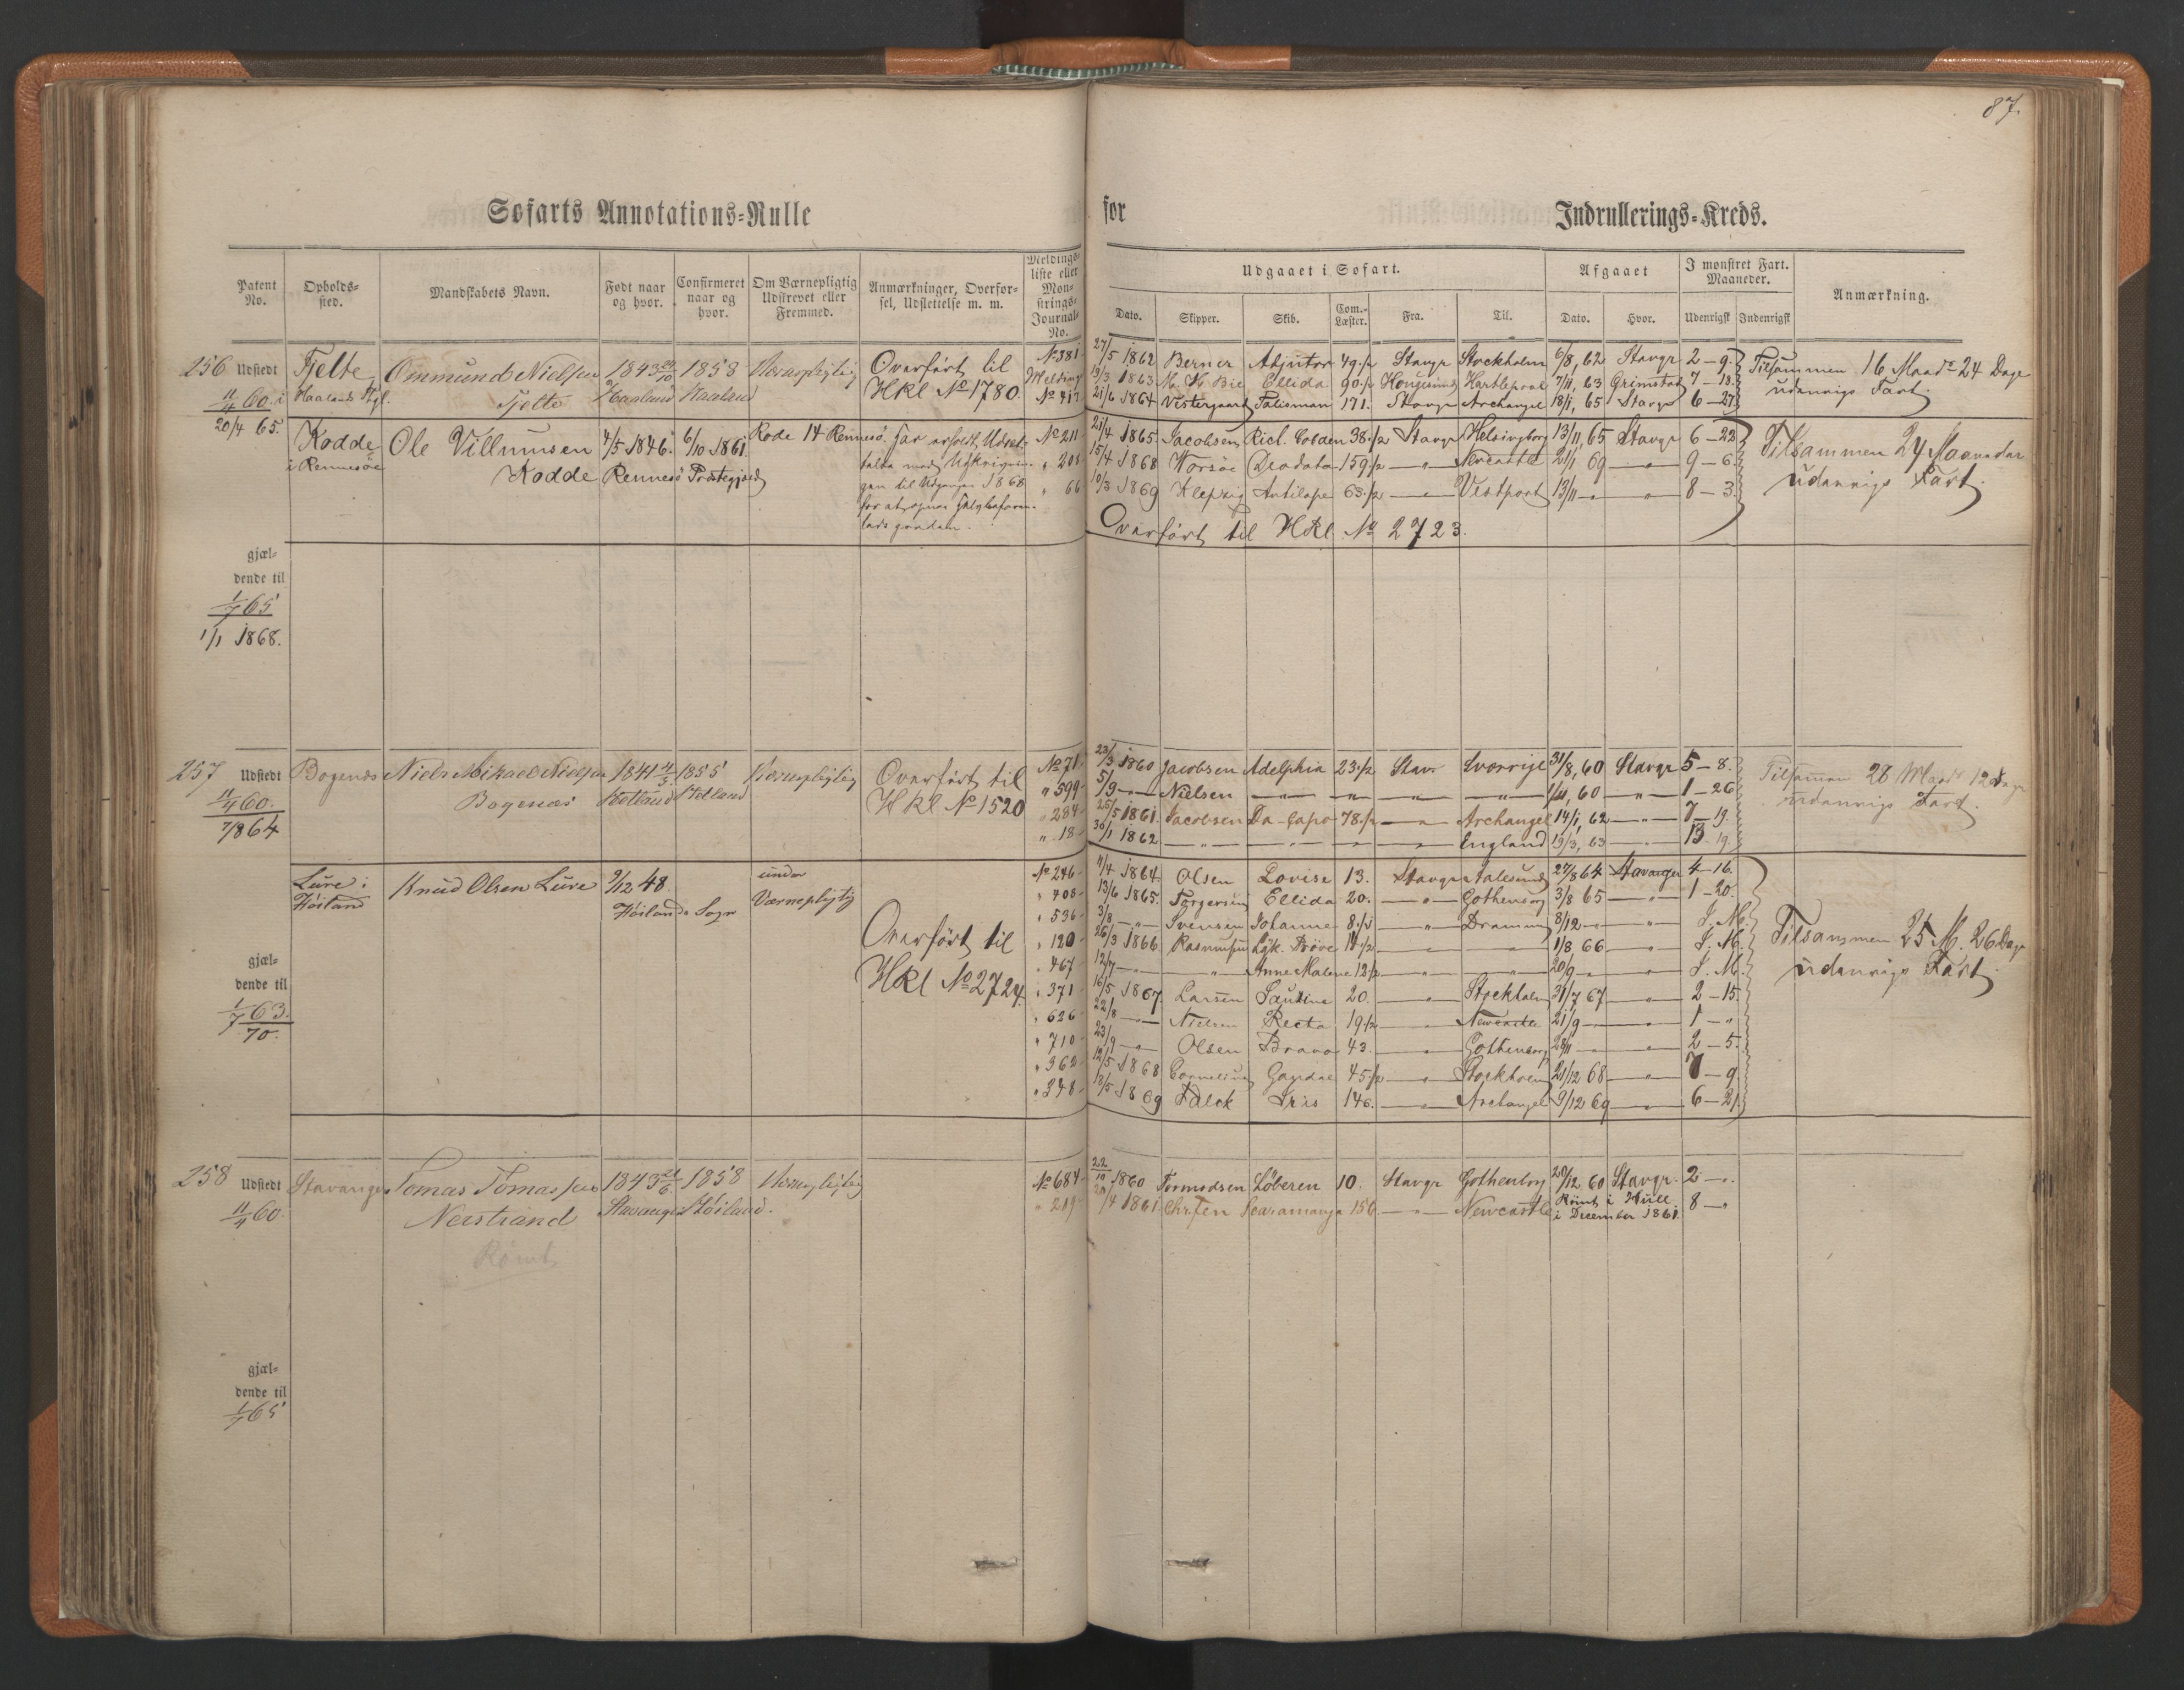 87.
Søfarts Annotations=Rulle for Indrullerings=Kreds.
Patent No. Opholds=sted. Mandskabets Navn. Født naar og hvor. Confirmeret naar og hvor. Om Værnepligtig Udskrevet eller Fremmed. Anmærkninger, Overfør=sel, Udslettelse m. m. Meldings=liste eller Mon=strings=Journal=No.
Udgaaet i Søfart. Afgaaet I mønstret Fart. Maaneder. Anmærkning.
Dato. Skipper. Skib. Com.=Læster. Fra. Til. Dato. Hvor. Udenrigsk Indenrigsk
256 Udstedt Fjelte Ommund Nielsen 1843 1858 Værnepligtig Overført til No 381 27/5 1862 Berner Adjutor 49 1/2 Stavgr Stockholm 6/8, 62 Stavgr 2-9. Tilsammen 16 Maadr 24 Dage
11/4 60. Haalands Pgl. Fjelte Haaland Haaland HKl No 1780 Melding 1863 M. H. Bie Ellida 90 1/2 Hougesund Hartlepool 7/11, 63 Grimstad 7-18. udenrigs Fart
No 417 21/6 1864 Vestergaard Talisman 171. Stavgr Archangel 18/1, 65 Stavgr 6-27
20/4 65. Kodde Ole Villumsen 4/5 1846. 6/10 1861. Rode 14 Rennesø. No 211 21/4 1865. Jacobsen Rich. Cobden 38 1/2 Stavgr Helsingborg 13/11, 65 Stavgr 6-22 Tilsammen 24 Maaneder
i Rennesøe Kodde Rennesø Præstegjæld " 208 15/4 1868 Worsøe Deodata 159 1/2 — " — Newcastle 2/1 69 — " — 9-6. udenrigs Fart.
til Udgangen 1868 " 66 10/3 1869 Kleppig Antilope 63 1/2 — " — Vestport 13/11 — " — " 8-3.
Overført til HKl No 2723.
gjæl=
dende til
1/7 65
1/1 1868.
257 Udstedt Bogenæs Niels Mikael Nielsen 1841 4/5 1855 Værnepligtig Overført til No 71 23/3 1860 Jacobsen Adelphia 23 1/2 Stavr Sværrige 31/8, 60 Stavgr 5-8. Tilsammen 28 Maadr 12 Dage
11/4 60. Bogenæs Hetland Hetland HKl No 1520 " 599 5/9 — " — Nielsen — " — " — " — " 1/11, 60 — " — 1-26 udenrigs Fart.
7/8 64 " 284 25/5 1861. Jacobsen Da-Capo 78 1/2 — " — Archangel 14/1, 62 — " — 7-19.
" 18 30/1 1862 — " — " — " — " — England 19/3, 63 — " — 13 19.
Lure i Knud Olsen Lure 9/12 48. under No 246 11/4 1864. Olsen Lovise 13. Stavgr Aalesund 27/8 64 Stavanger 4-16.
Høiland Høilands Sogn Værnepligtig " 408 13/6 1865. Torgersen Ellida 20. — " — Gothenborg 3/8 65 — " — 1-20.
" 536 3/8 — " — Svensen Johanne 8 1/2 " Drammen 8/12 — " — " J. M.
Overført til " 120 26/3 1866 Rasmussen Lyk. Prøve 11 1/2 — " — " 1/8 66 — " — J. M. Tilsammen 25 M. 26 Dage
" 467 12/7 — " — " — Anne Malene 12 1/2 — " — " 20/9 — " — " J. M. udenrigs Fart.
HKl No 2724. " 371 16/5 1867 Larsen Saudine 20. — " — Stockholm 31/7 67 — " — 2-15.
" 626 22/8 — " — Nielsen Recta 19 1/2 — " — Newcastle 21/9 — " — " 1-"
" 710 23/9 — " — Olsen Bravo 43. — " — Gothenborg 28/11 — " — " 2-5.
" 362 12/5 1868 Cornelius Gazdal 45 1/2 — " — Stockholm 21/12 68 — " — 7-9
" 348 18/5 1869 Falck Iris 146. — " — Archangel 9/12 69 — " — 6-21.
gjæl=
dende til
1/7 63.
70.
258 Udstedt Stavanger Tomas Tomassen 1843 21/6. 1858 Værnepligtig No 684 22/10 1860 Tormodsen Løberen 10. Stavgr Gothenborg 20/12, 60 Stavgr. 2-".
11/4 60. Nerstrand Stavanger Høiland. " 219 20/4 1861 Chrsten Scaramanga 156 — " — Newcastle Rømt i Hull 8-"
i December 1861.
Rømt
gjæl=
dende til
1/7 65